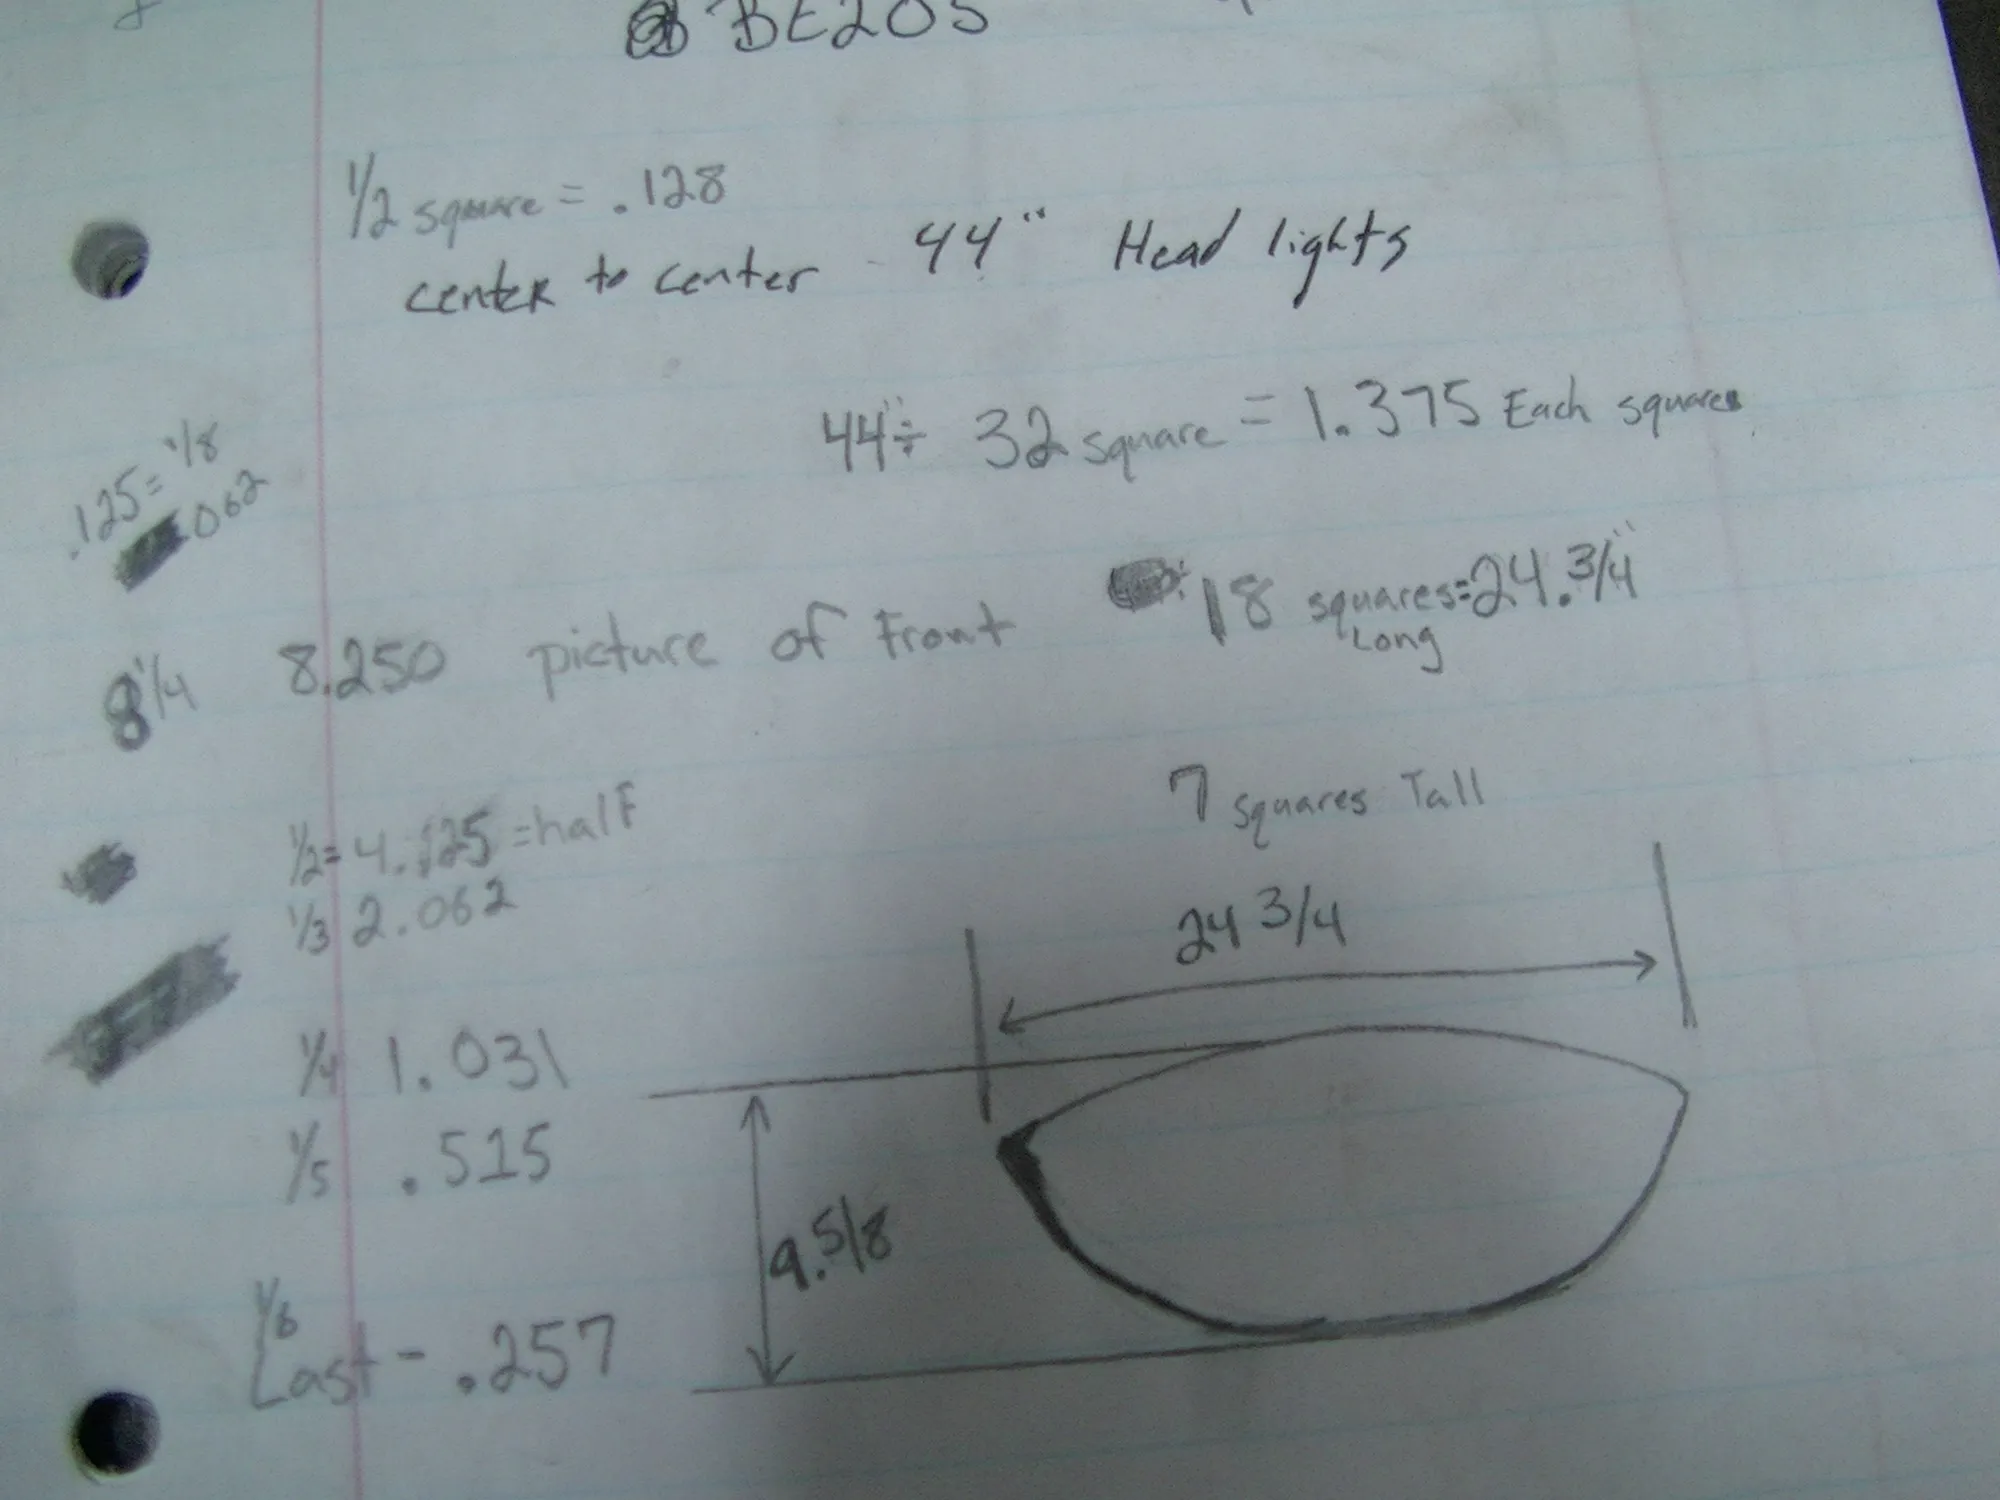 BE205
1/2 square = .128
center to center 44" Head lights
44" ÷ 32 square = 1.375 Each squares
.125 = 1/8
.062
18 squares = 24.3/4"
Long
8 1/4 8.250 picture of Front
7 squares Tall
1/2 = 4.125 = half
1/3 2.062
24 3/4
1/4 1.031
1/5 .515
9.5/8
1/6
Last - .257